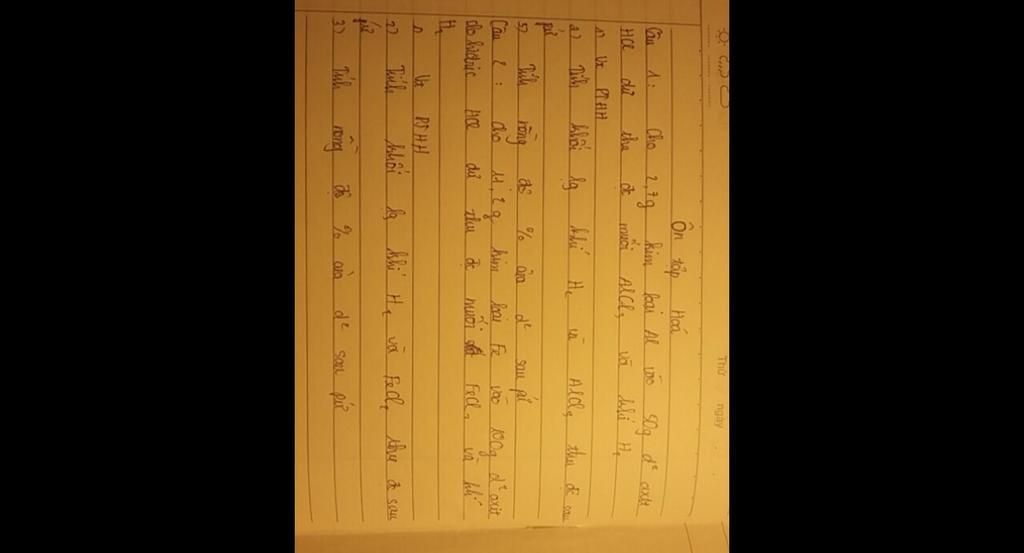 Thứ ngày
Ôn tập Hoá
Câu 1: Cho 2,7g kim loại Al vào 50g d² axit
HCl dư thu đc muối AlCl₃ và khí H₂
1) Vt PTHH
2) Tính khối lg khí H₂ và AlCl₃ thu đc sau
pứ
3) Tính nồng độ % của d² sau pứ
Câu 2: Cho 11,2g kim loại Fe vào 100g d² axit
clohidric HCl dư thu đc muối FeCl₂ và khí
H₂
1) Vt PTHH
2) Tính khối lg khí H₂ và FeCl₂ thu đc sau
pứ
3) Tính nồng độ % của d² sau pứ